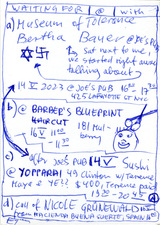 WAITING FOR @ with
a) Museum of Tolerance
Bertha Bayer @ JOE'S PUB
Sat next to me, we
started right away
talking about
14 V 2023 @ JOE'S PUB 16 17
425 LAFAYETTE ST NYC
b) @ BARBER'S BLUEPRINT
HAIRCUT
16 V 11 00 11 30
181 Mulberry
c) after JOE'S PUB 14 V Sushi
@ YOPPARAI 49 Clinton w/Terence
$400, Terence paid
d) CEU of NICOLE GRUNEWALD
from HACIENDA BUENA SUERTE, SPAIN